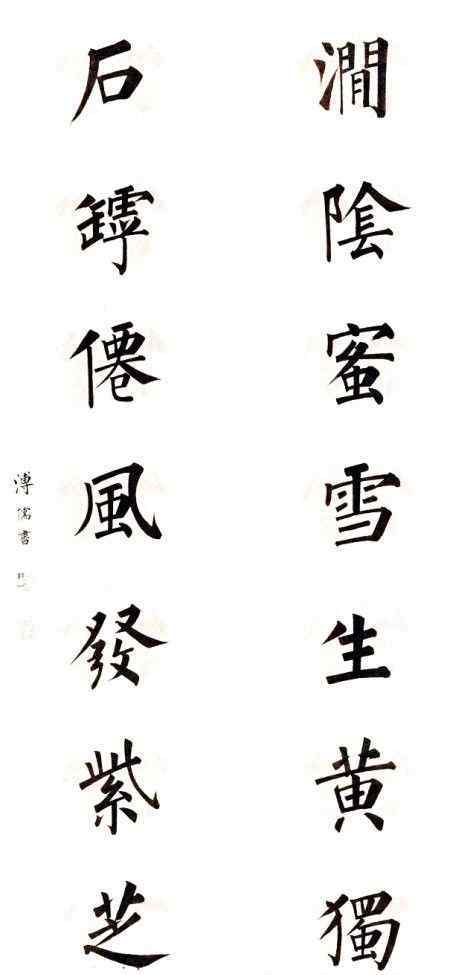 澗陰蜜雪生黃獨
石罅僊風發紫芝
溥儒書